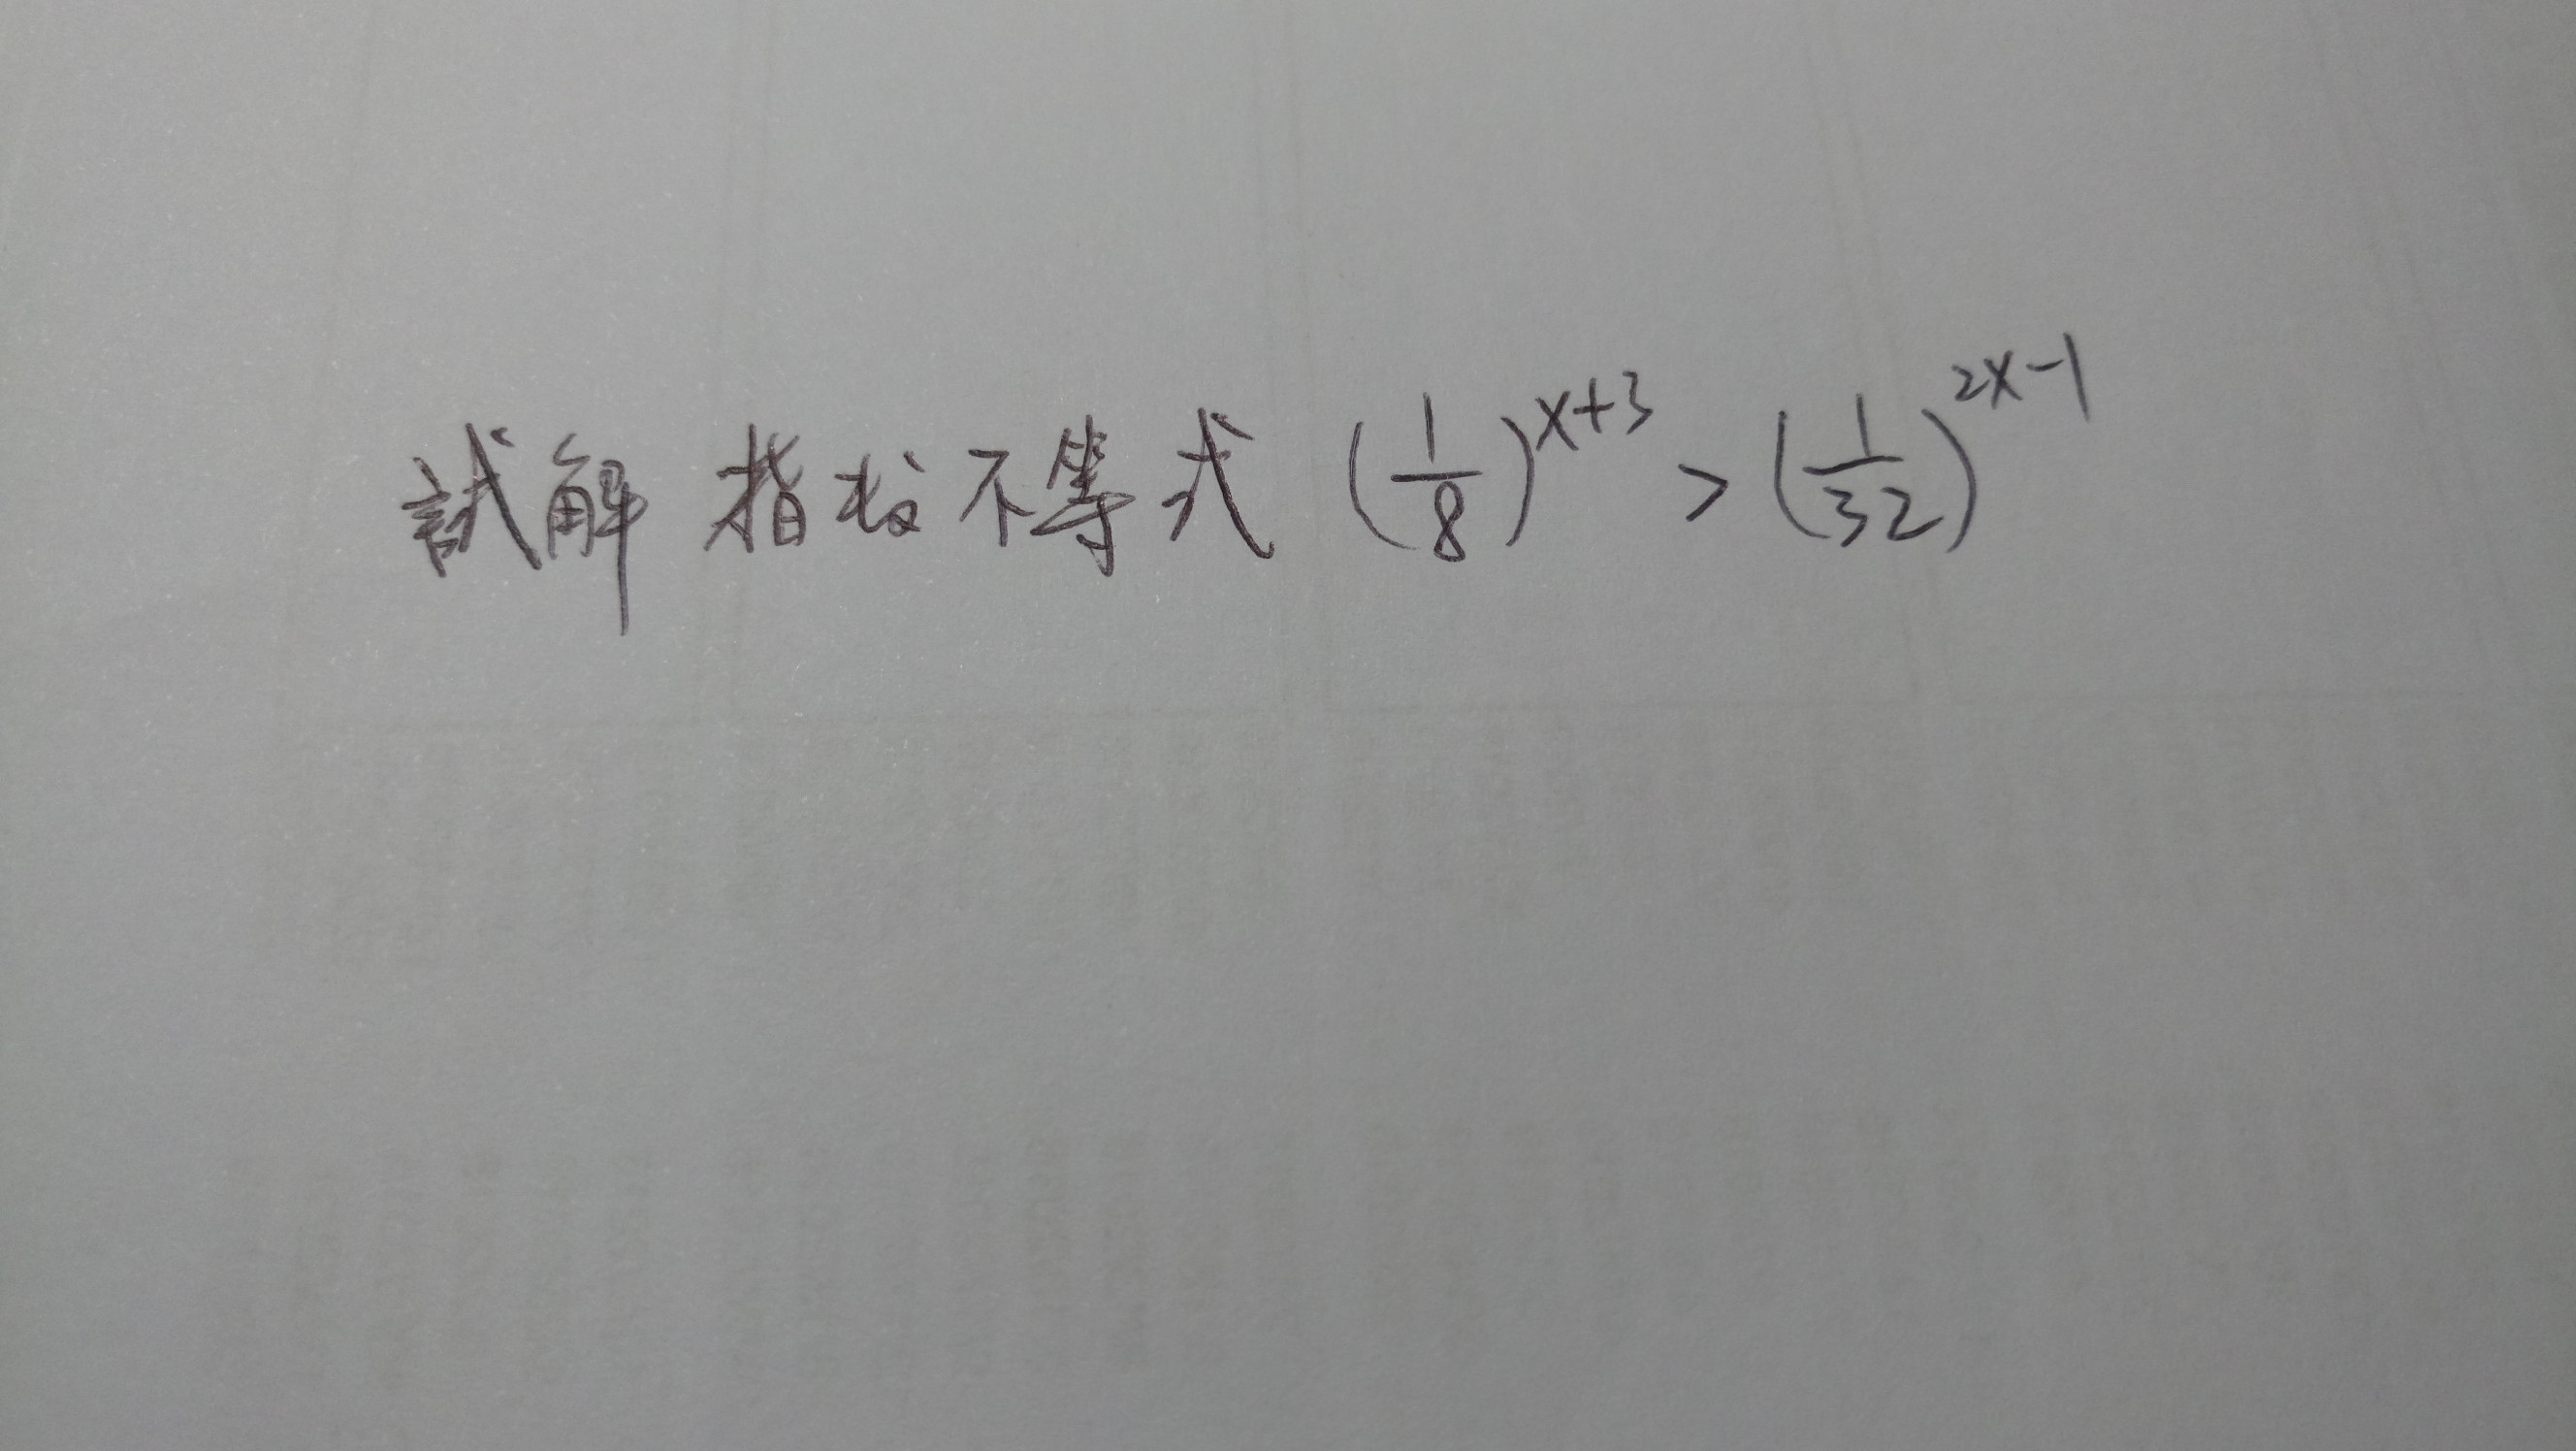 試解 指数不等式 (1/8)^{x+3} > (1/32)^{2x-1}